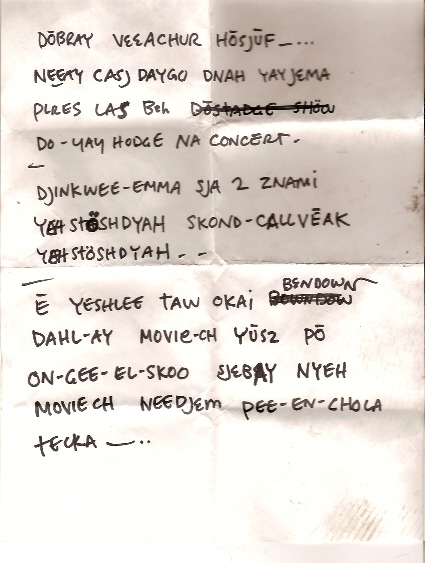 DŌBRAY VEEACHUR HŌSJŪF _ ...
NEEAY CASJ DAYGO DNAH YAYJEMA
PLRES LAS Beh DŌSTADGE SHŌW
DO-YAY HODGE NA CONCERT.
DJINKWEE-EMMA SJA 2 ZNAMi
YEH STÖSHDYAH SKOND-CALLVĒAK
YEH STÖSHDYAH - -
BENDOWN
Ē YESHLEE TAW OKAi
DAHL-AY MOVIE-CH YŪSZ PŌ
ON-GEE-EL-SKOO SJEBAY NYEH
MOVIECH NEEDJEM PEE-EN-CHOLA
TECKA _ ..